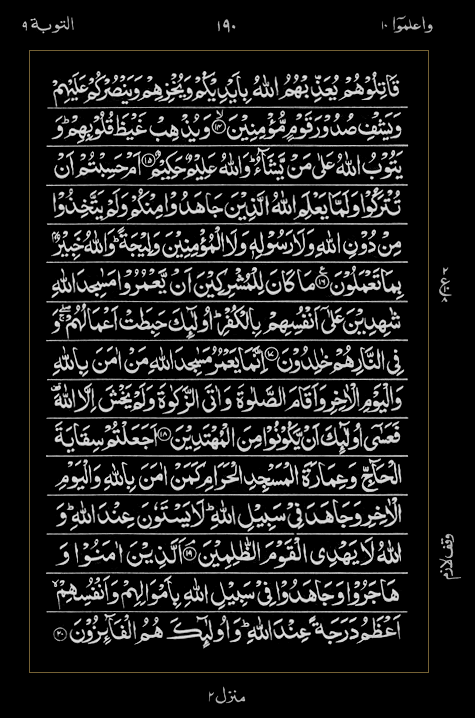 واعلموا ١٠ ١٩٠ التوبة ٩
قَاتِلُوْهُمْ يُعَذِّبْهُمُ اللّٰهُ بِاَيْدِيْكُمْ وَيُخْزِهِمْ وَيَنْصُرْكُمْ عَلَيْهِمْ
وَيَشْفِ صُدُوْرَ قَوْمٍ مُّؤْمِنِيْنَ ۙ‏﴿۱۴﴾ وَيُذْهِبْ غَيْظَ قُلُوْبِهِمْ ؕ وَ
يَتُوْبُ اللّٰهُ عَلٰى مَنْ يَّشَآءُ ؕ وَاللّٰهُ عَلِيْمٌ حَكِيْمٌ ﴿۱۵﴾ اَمْ حَسِبْتُمْ اَنْ
تُتْرَكُوْا وَلَمَّا يَعْلَمِ اللّٰهُ الَّذِيْنَ جَاهَدُوْا مِنْكُمْ وَلَمْ يَتَّخِذُوْا
مِنْ دُوْنِ اللّٰهِ وَلَا رَسُوْلِهٖ وَلَا الْمُؤْمِنِيْنَ وَلِيْجَةً ؕ وَاللّٰهُ خَبِيْرٌۢ
بِمَا تَعْمَلُوْنَ ﴿۱۶﴾ مَا كَانَ لِلْمُشْرِكِيْنَ اَنْ يَّعْمُرُوْا مَسٰجِدَ اللّٰهِ
شٰهِدِيْنَ عَلٰٓى اَنْفُسِهِمْ بِالْكُفْرِ ؕ اُولٰٓئِكَ حَبِطَتْ اَعْمَالُهُمْ ۖۚ وَ
فِى النَّارِ هُمْ خٰلِدُوْنَ ﴿۱۷﴾ اِنَّمَا يَعْمُرُ مَسٰجِدَ اللّٰهِ مَنْ اٰمَنَ بِاللّٰهِ
وَالْيَوْمِ الْاٰخِرِ وَاَقَامَ الصَّلٰوةَ وَاٰتَى الزَّكٰوةَ وَلَمْ يَخْشَ اِلَّا اللّٰهَ
فَعَسٰٓى اُولٰٓئِكَ اَنْ يَّكُوْنُوْا مِنَ الْمُهْتَدِيْنَ ﴿۱۸﴾ اَجَعَلْتُمْ سِقَايَةَ
الْحَآجِّ وَعِمَارَةَ الْمَسْجِدِ الْحَرَامِ كَمَنْ اٰمَنَ بِاللّٰهِ وَالْيَوْمِ
الْاٰخِرِ وَجَاهَدَ فِىْ سَبِيْلِ اللّٰهِ ؕ لَا يَسْتَوٗنَ عِنْدَ اللّٰهِ ؕ وَ
اللّٰهُ لَا يَهْدِى الْقَوْمَ الظّٰلِمِيْنَ ۘ ﴿۱۹﴾ اَلَّذِيْنَ اٰمَنُوْا وَ
هَاجَرُوْا وَجَاهَدُوْا فِىْ سَبِيْلِ اللّٰهِ بِاَمْوَالِهِمْ وَاَنْفُسِهِمْ ۙ
اَعْظَمُ دَرَجَةً عِنْدَ اللّٰهِ ؕ وَاُولٰٓئِكَ هُمُ الْفَآئِزُوْنَ ﴿۲۰﴾
وقف لازم
منزل ٢